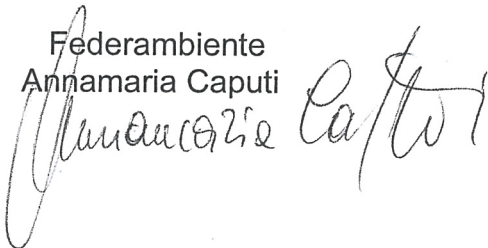 Federambiente
Annamaria Caputi
Annamaria Caputi